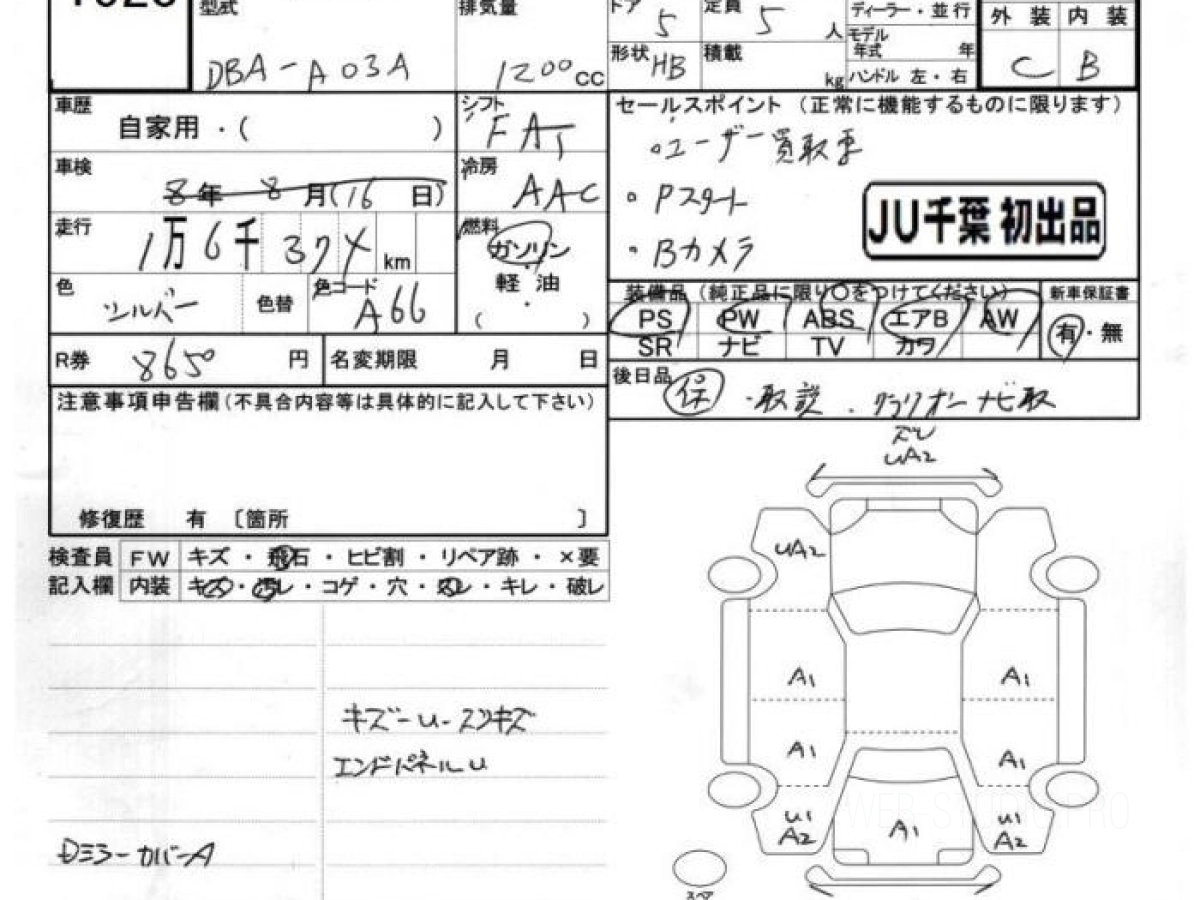 型式 排気量 ドア 5 定員 5 人 ディーラー・並行 外装 内装
DBA-A03A 1200 CC 形状 HB 積載 kg モデル年式 年 ハンドル 左・右 C B
車歴 自家用・( ) シフト FAT
車検 8年 8月(16日) 冷房 AAC
走行 1万6千37 km 燃料 ガソリン 軽油 ( )
色 シルバー 色替 色コード A66
R券 8650 円 名変期限 月 日
注意事項申告欄(不具合内容等は具体的に記入して下さい)
修復歴 有 〔箇所 〕
セールスポイント (正常に機能するものに限ります)
・ユーザー買取車
・Pスタート
・Bカメラ
JU千葉 初出品
装備品(純正品に限り○をつけてください) 新車保証書
PS PW ABS エアB AW 有・無
SR ナビ TV カワ
後日品 保・取説・クラリオンナビ取
検査員 FW キズ・飛石・ヒビ割・リペア跡・×要
記入欄 内装 キズ・汚レ・コゲ・穴・スレ・キレ・破レ
キズ-U-スリキズ
エンドパネルU
Dミラーカバー A
ズレ
UA2
UA2
A1 A1
A1 A1
U1 U1
A2 A1 A2
スペア
WEB-STUDIO PRO